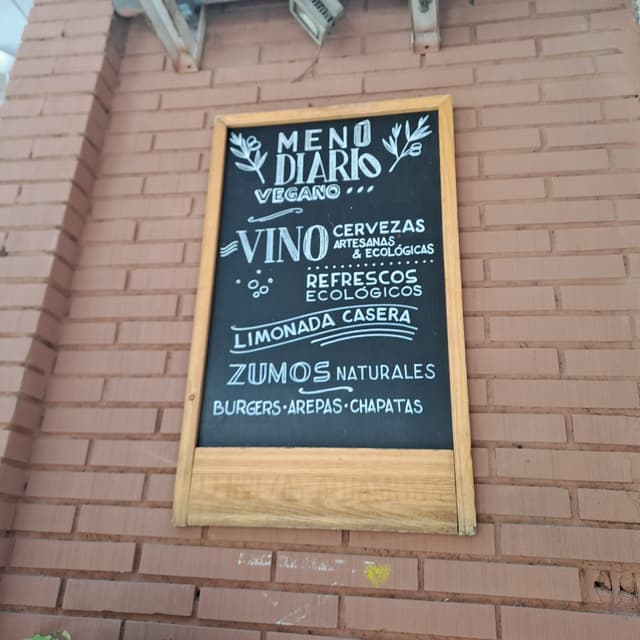 MENÚ
DIARIO
VEGANO
VINO CERVEZAS
ARTESANAS
& ECOLÓGICAS
REFRESCOS
ECOLÓGICOS
LIMONADA CASERA
ZUMOS NATURALES
BURGERS·AREPAS·CHAPATAS